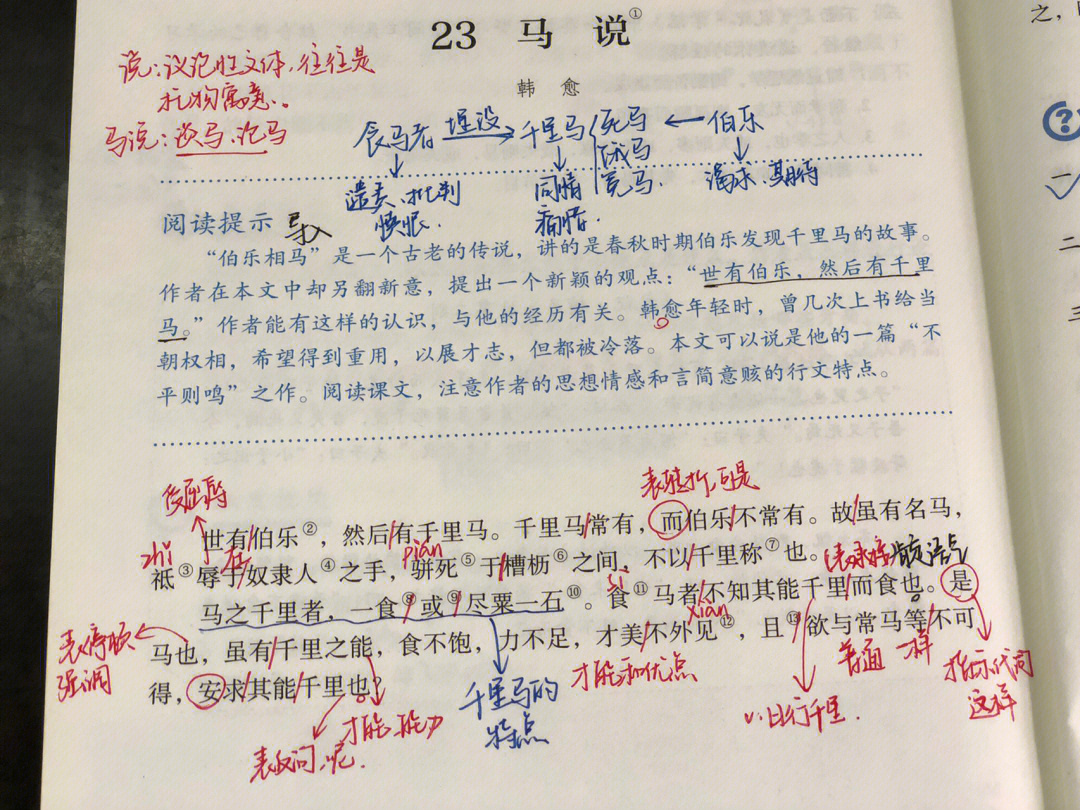 23 马 说①
说:议论性文体,往往是
托物寓意。
韩 愈
马说:说马、论马
食马者 埋没 千里马 死马 伯乐
饿马
谴责、批判 同情 渴求、期待
愤恨. 痛惜.
阅读提示 导入
“伯乐相马”是一个古老的传说，讲的是春秋时期伯乐发现千里马的故事。
作者在本文中却另翻新意，提出一个新颖的观点：“世有伯乐，然后有千里
马。”作者能有这样的认识，与他的经历有关。韩愈年轻时，曾几次上书给当
朝权相，希望得到重用，以展才志，但都被冷落。本文可以说是他的一篇“不
平则鸣”之作。阅读课文，注意作者的思想情感和言简意赅的行文特点。
表转折,可是
世有/伯乐②，然后/有千里马。千里马/常有，而伯乐/不常有。故/虽有名马，
zhǐ 在 pián
祗③辱于奴隶人④之手，骈死⑤于/槽枥⑥之间，不以/千里称⑦也。
sì xiàn
马之千里者，一食⑧/或⑨尽粟一石⑩。食⑪马者/不知其能千里/而食也。是
表停顿
强调
马也，虽有/千里之能，食不饱，力不足，才美/不外见⑫，且⑬/欲与常马等/不可
普通 一样
得，安求/其能/千里也？
千里马的
特点
才能和优点
才能、能力
表反问,呢.
日行千里.
指示代词
这样